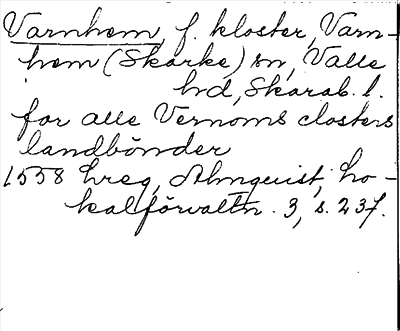 Varnhem, f. kloster, Varn-
hem (Skarke) sn, Valle
hd, Skarab. l.
for alle Vernoms closters
landbönder
1558 hreg, Almquist, Lo-
kalförvaltn. 3, s. 237.